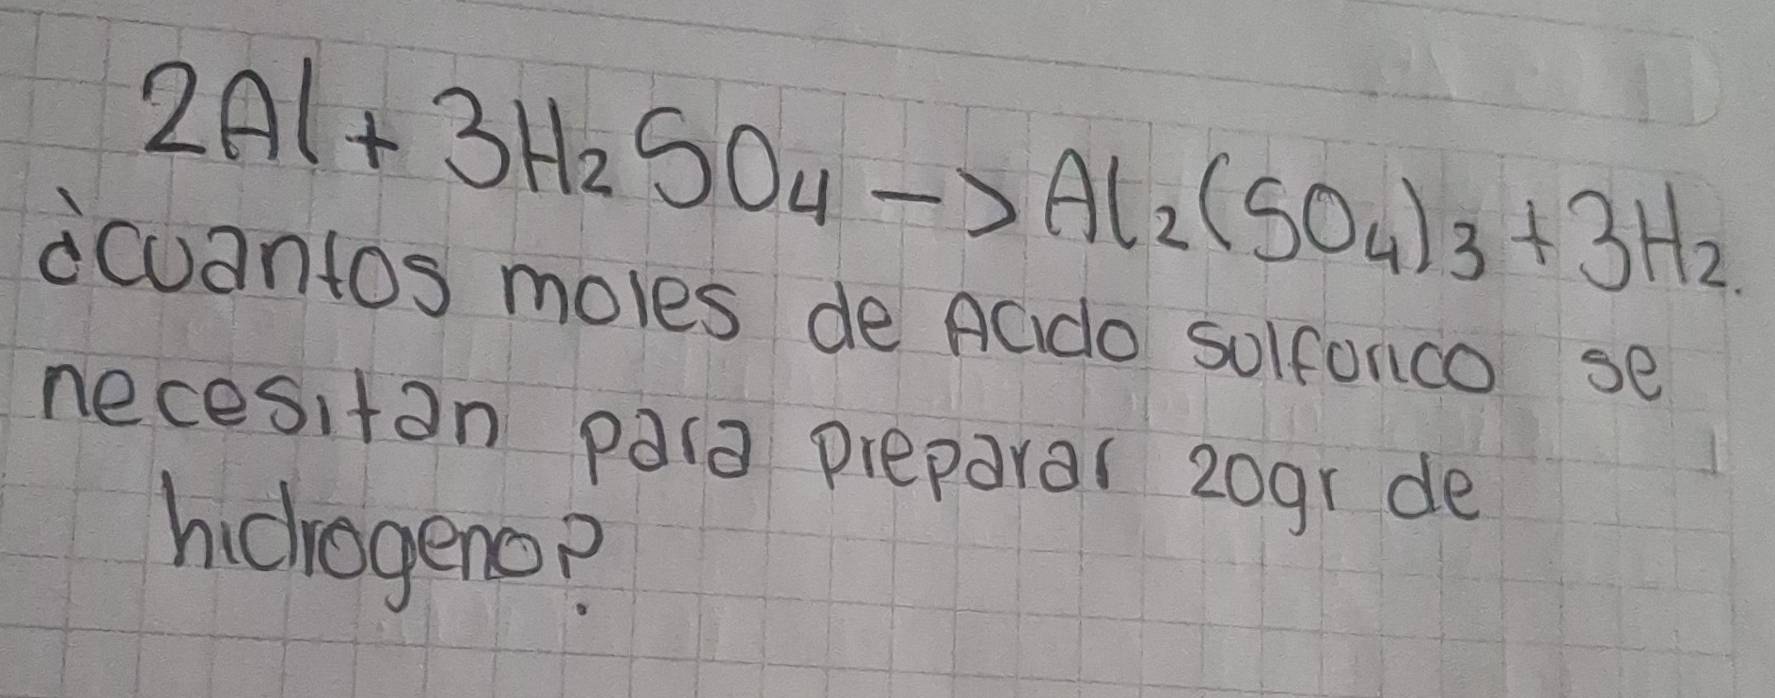 2Al + 3H₂SO₄ -> Al₂(SO₄)₃ + 3H₂.
¿cuantos moles de Acido sulfurico se
necesitan para preparar 20gr de
hidrogeno?